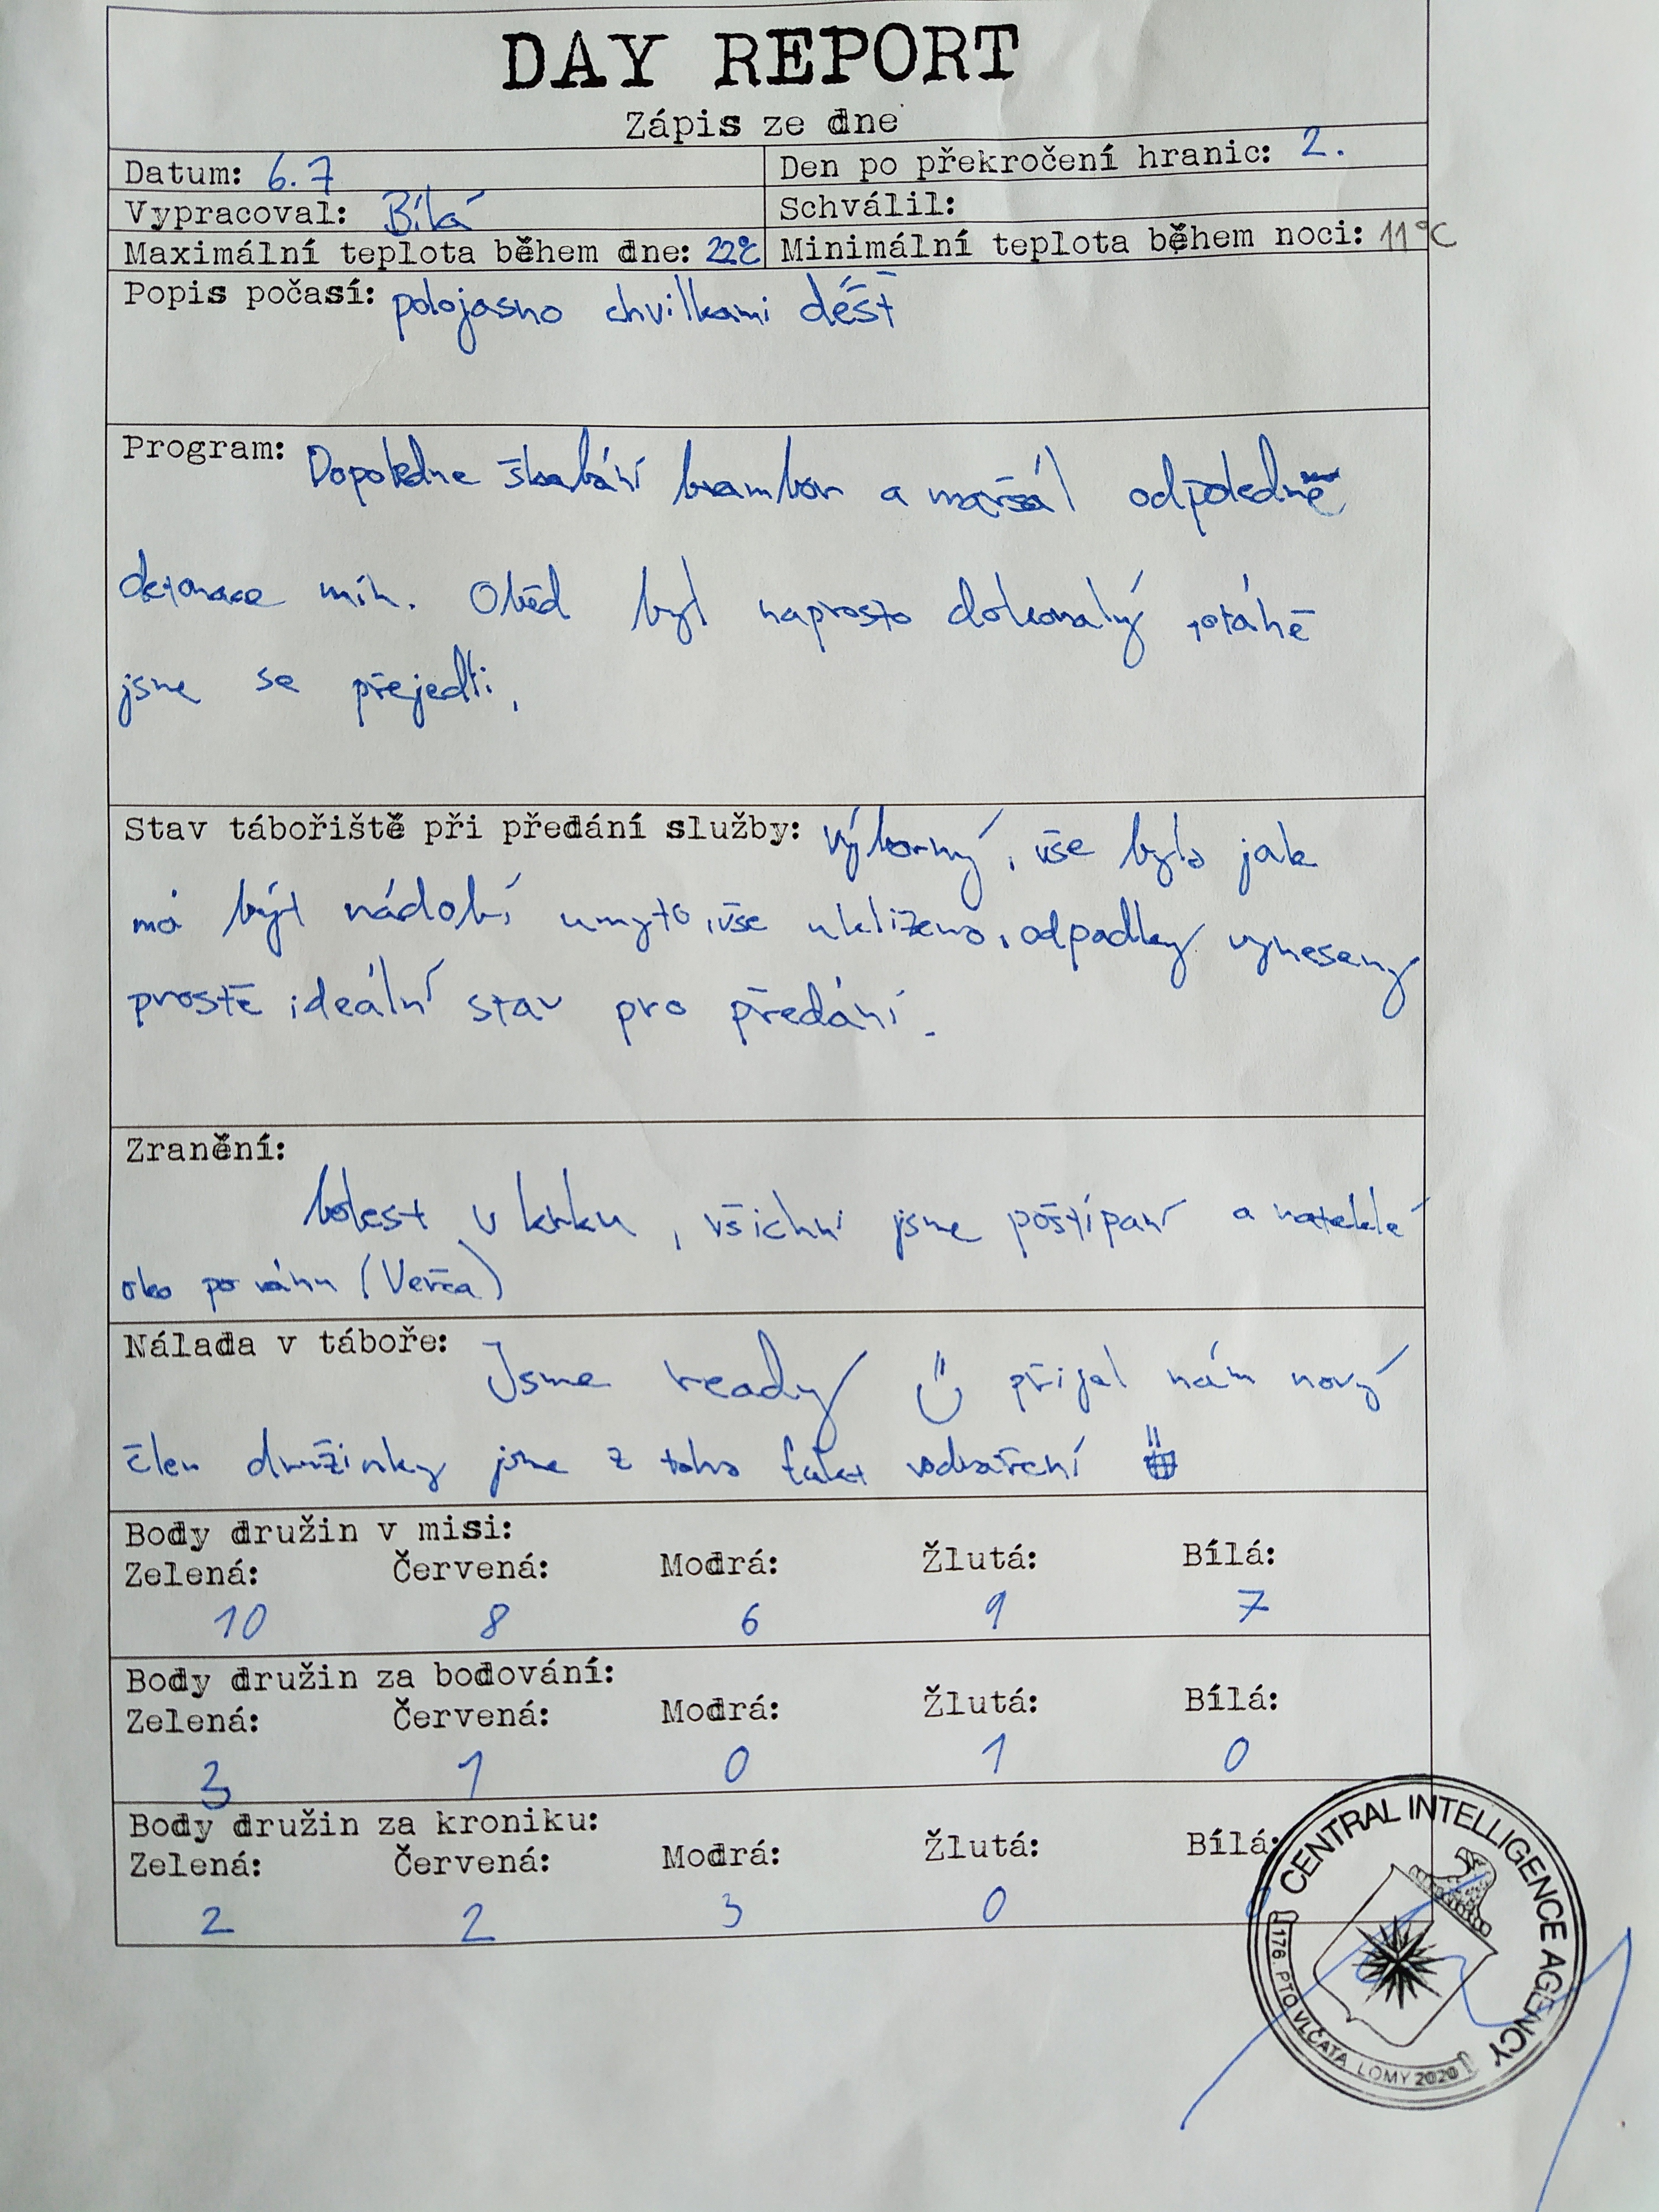 DAY REPORT
Zápis ze dne
Datum: 6.7
Den po překročení hranic: 2.
Vypracoval: Bílá
Schválil:
Maximální teplota během dne: 22°C
Minimální teplota během noci: 11°C
Popis počasí: polojasno chvilkami déšť
Program: Dopoledne škrabání brambor a maršál odpoledně
detonace min. Oběd byl naprosto dokonalý,
jsme se přejedli.
Stav tábořiště při předání služby: výborný, vše bylo jak
má být nádobí umyto, vše uklizeno, odpadky vyneseny
prostě ideální stav pro předání.
Zranění:
bolest v krku, všichni jsme poštípaní a nateklé
oko po ránu (Verča)
Nálada v táboře: Jsme ready přijel nám nový
člen družinky jsme z toho fakt
Body družin v misi:
Zelená: Červená: Modrá: Žlutá: Bílá:
10 8 6 9 7
Body družin za bodování:
Zelená: Červená: Modrá: Žlutá: Bílá:
3 1 0 1 0
Body družin za kroniku:
Zelená: Červená: Modrá: Žlutá: Bílá:
2 2 3 0
CENTRAL INTELLIGENCE AGENCY
176. PTO VLČATA LOMY 2020